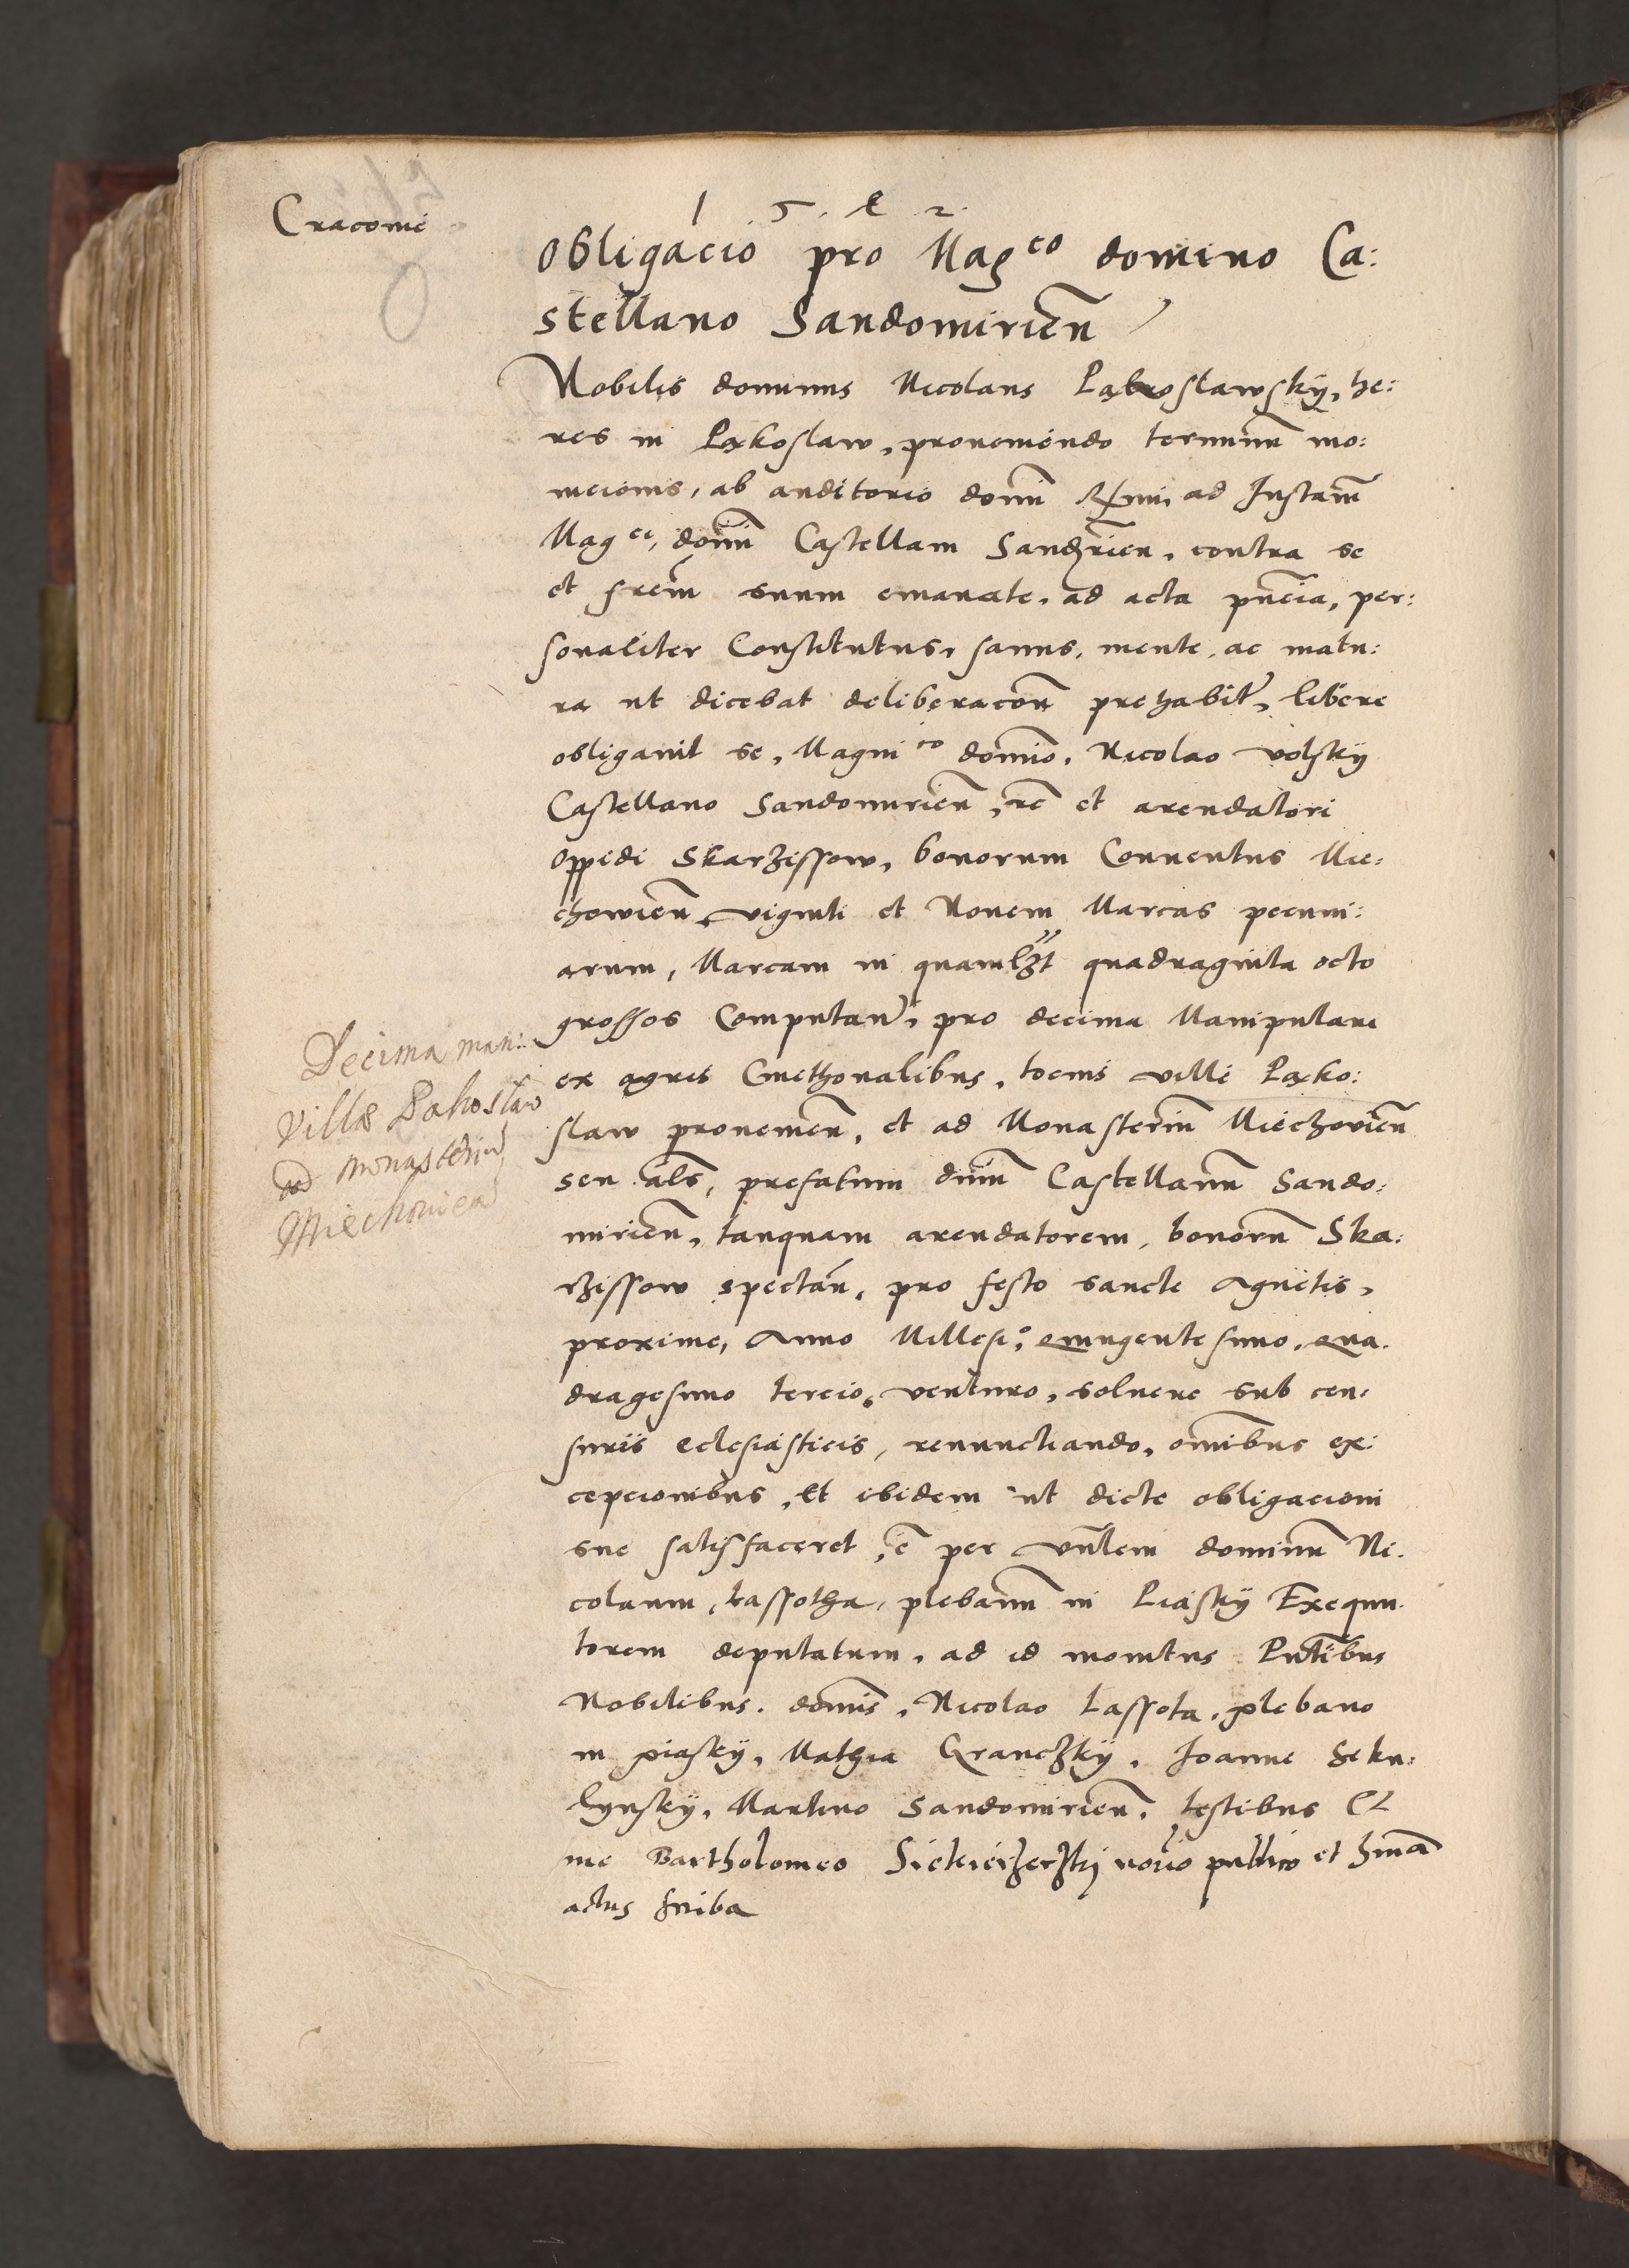 Cracovie
1 5 4 2
Obligacio pro Mag^co domino Ca:
stellano Sandomirien̄
Nobilis dominus Nicolaus Pąkoslawskÿ, he:
res in Pąkoslaw, proveniendo terminū mo:
nicionis, ab auditorio domī Rmi, ad Instanm̄
Mag^ci, domī Castellani Sandrien̄, contra se
et frem̄ suum emanate, ad acta pn̄cia, per:
sonaliter Constitutus, sanus, mente, ac matu:
ra ut dicebat deliberacōn prehabit, libere
obligavit se, Magni^co domīo, Nicolao volskÿ
Castellano Sandomirien̄, et arendatori
Oppidi Skarzissow, bonorum Conventus Mie:
chowien̄, viginti et Novem Marcas pecuni:
arum, Marcam in quamlꝫt quadraginta octo
grossos Computan̄, pro decima Manipulari
ex agris Cmethonalibus, tocius ville Pąko:
slaw provenien̄, et ad Monasteriū Miechovien̄
seu als̄, prefatum dn̄m Castellanū Sando:
mirien̄, tanquam arendatorem, bonorū Ska:
rzissow spectan̄, pro festo sancte Agnetis,
proxime, Anno Millesi^o, quingentesimo, qua.
dragesimo tercio, venturo, solvere sub cen:
suris eclesiasticis, renunctiando, om̄ibus ex:
cepcionibus, Et ibidem ut dicte obligacioni
sue satisfaceret, ē per vn̄lem dominū Ni.
colaum, Lassotha, plebanū in Piaskÿ Exequu.
torem deputatum, ad id monitus Pn̄tibus
Nobilibus. domīs, Nicolao Lassota, plebano
in piaskÿ, Mathia Granczkÿ, Joanne Seku:
lynskÿ, Martino Sandomirien̄, testibus Et
me Bartholomeo Siekierzeczkj no͞rio publico et hmōi
actus scriba
Decima man:
villæ Pakoslaw
ad monasteriū
Miechovien